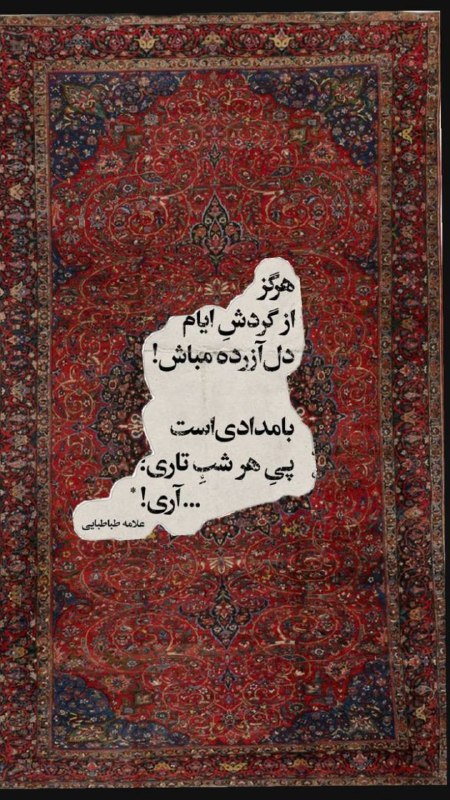 هرگز
از گردشِ ایام
دل‌آزرده مباش!
بامدادی‌است
پیِ هر شبِ تاری:
...آری!*
علامه طباطبایی